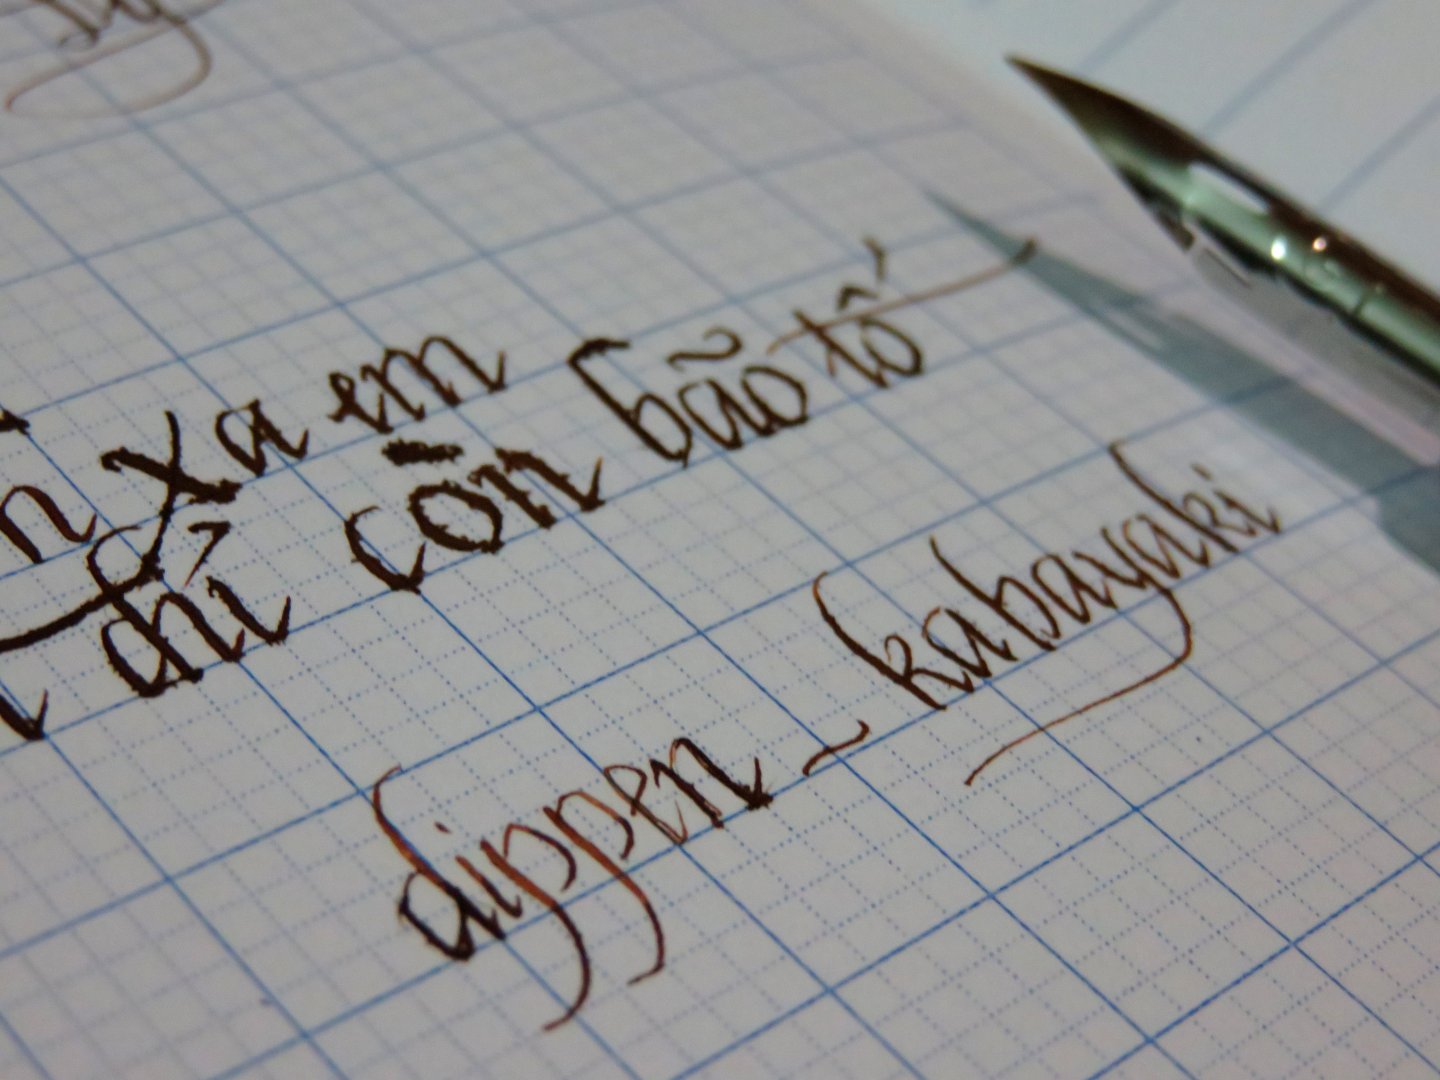 xa em
chỉ còn bão tố
dippen ~ kabayaki